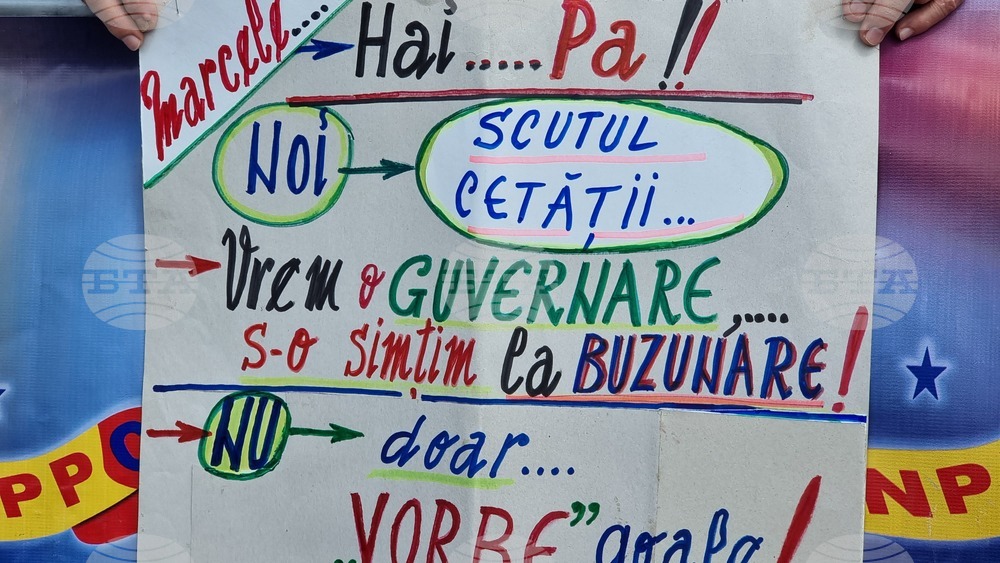 Marcele....
Hai.....Pa!!
NOi
SCUTUL
CETĂȚii...
Vrem o GUVERNARE,....
s-o simțim la BUZUNARE!
NU doar....
„VORBE” goale!
PPC
NP
БТА
БТА